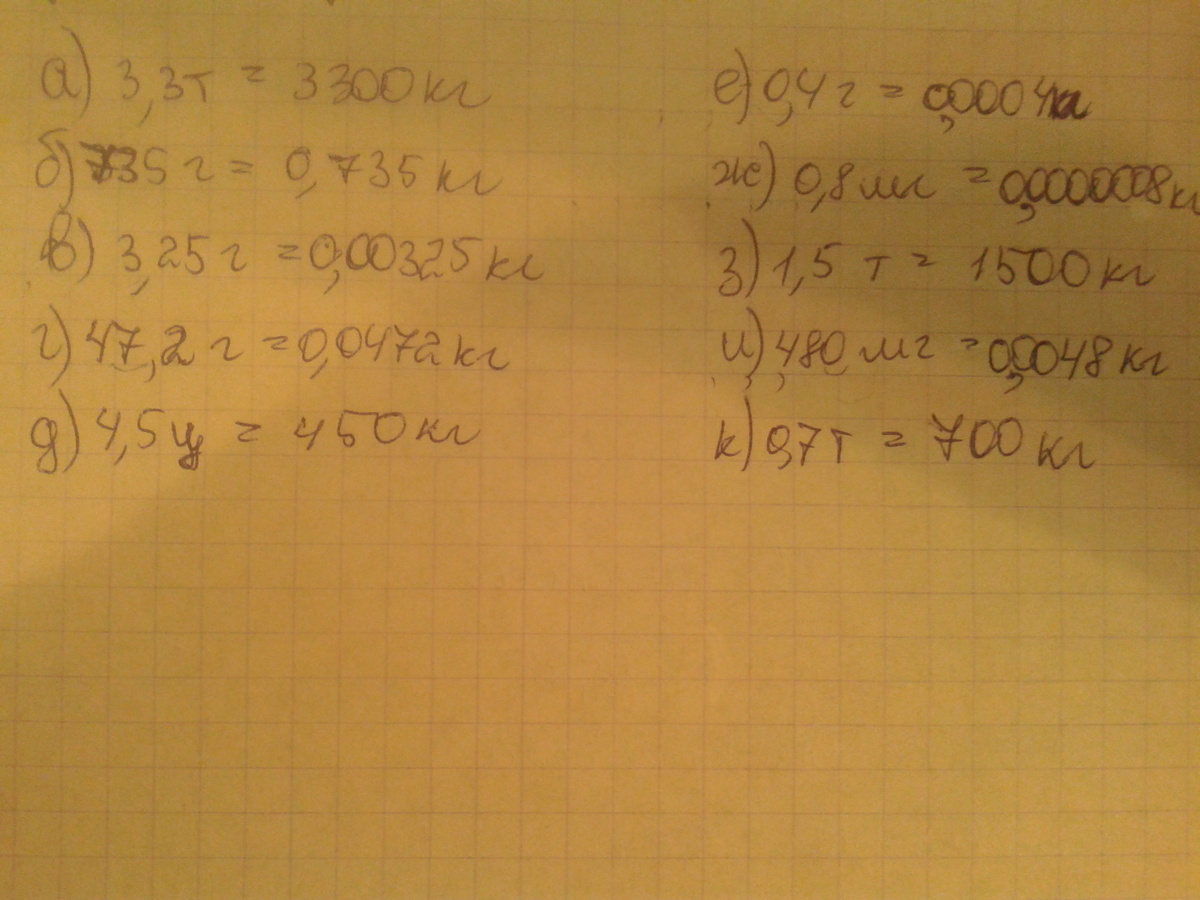 а) 3,3т = 3300кг
б) 735 г = 0,735 кг
в) 3,25 г = 0,00325 кг
г) 47,2 г = 0,0472 кг
д) 4,5ц = 450кг
е) 0,4 г = 0,0004кг
ж) 0,8 мг = 0,0000008кг
з) 1,5 т = 1500кг
и) 480 мг = 0,0048 кг
к) 0,7т = 700 кг